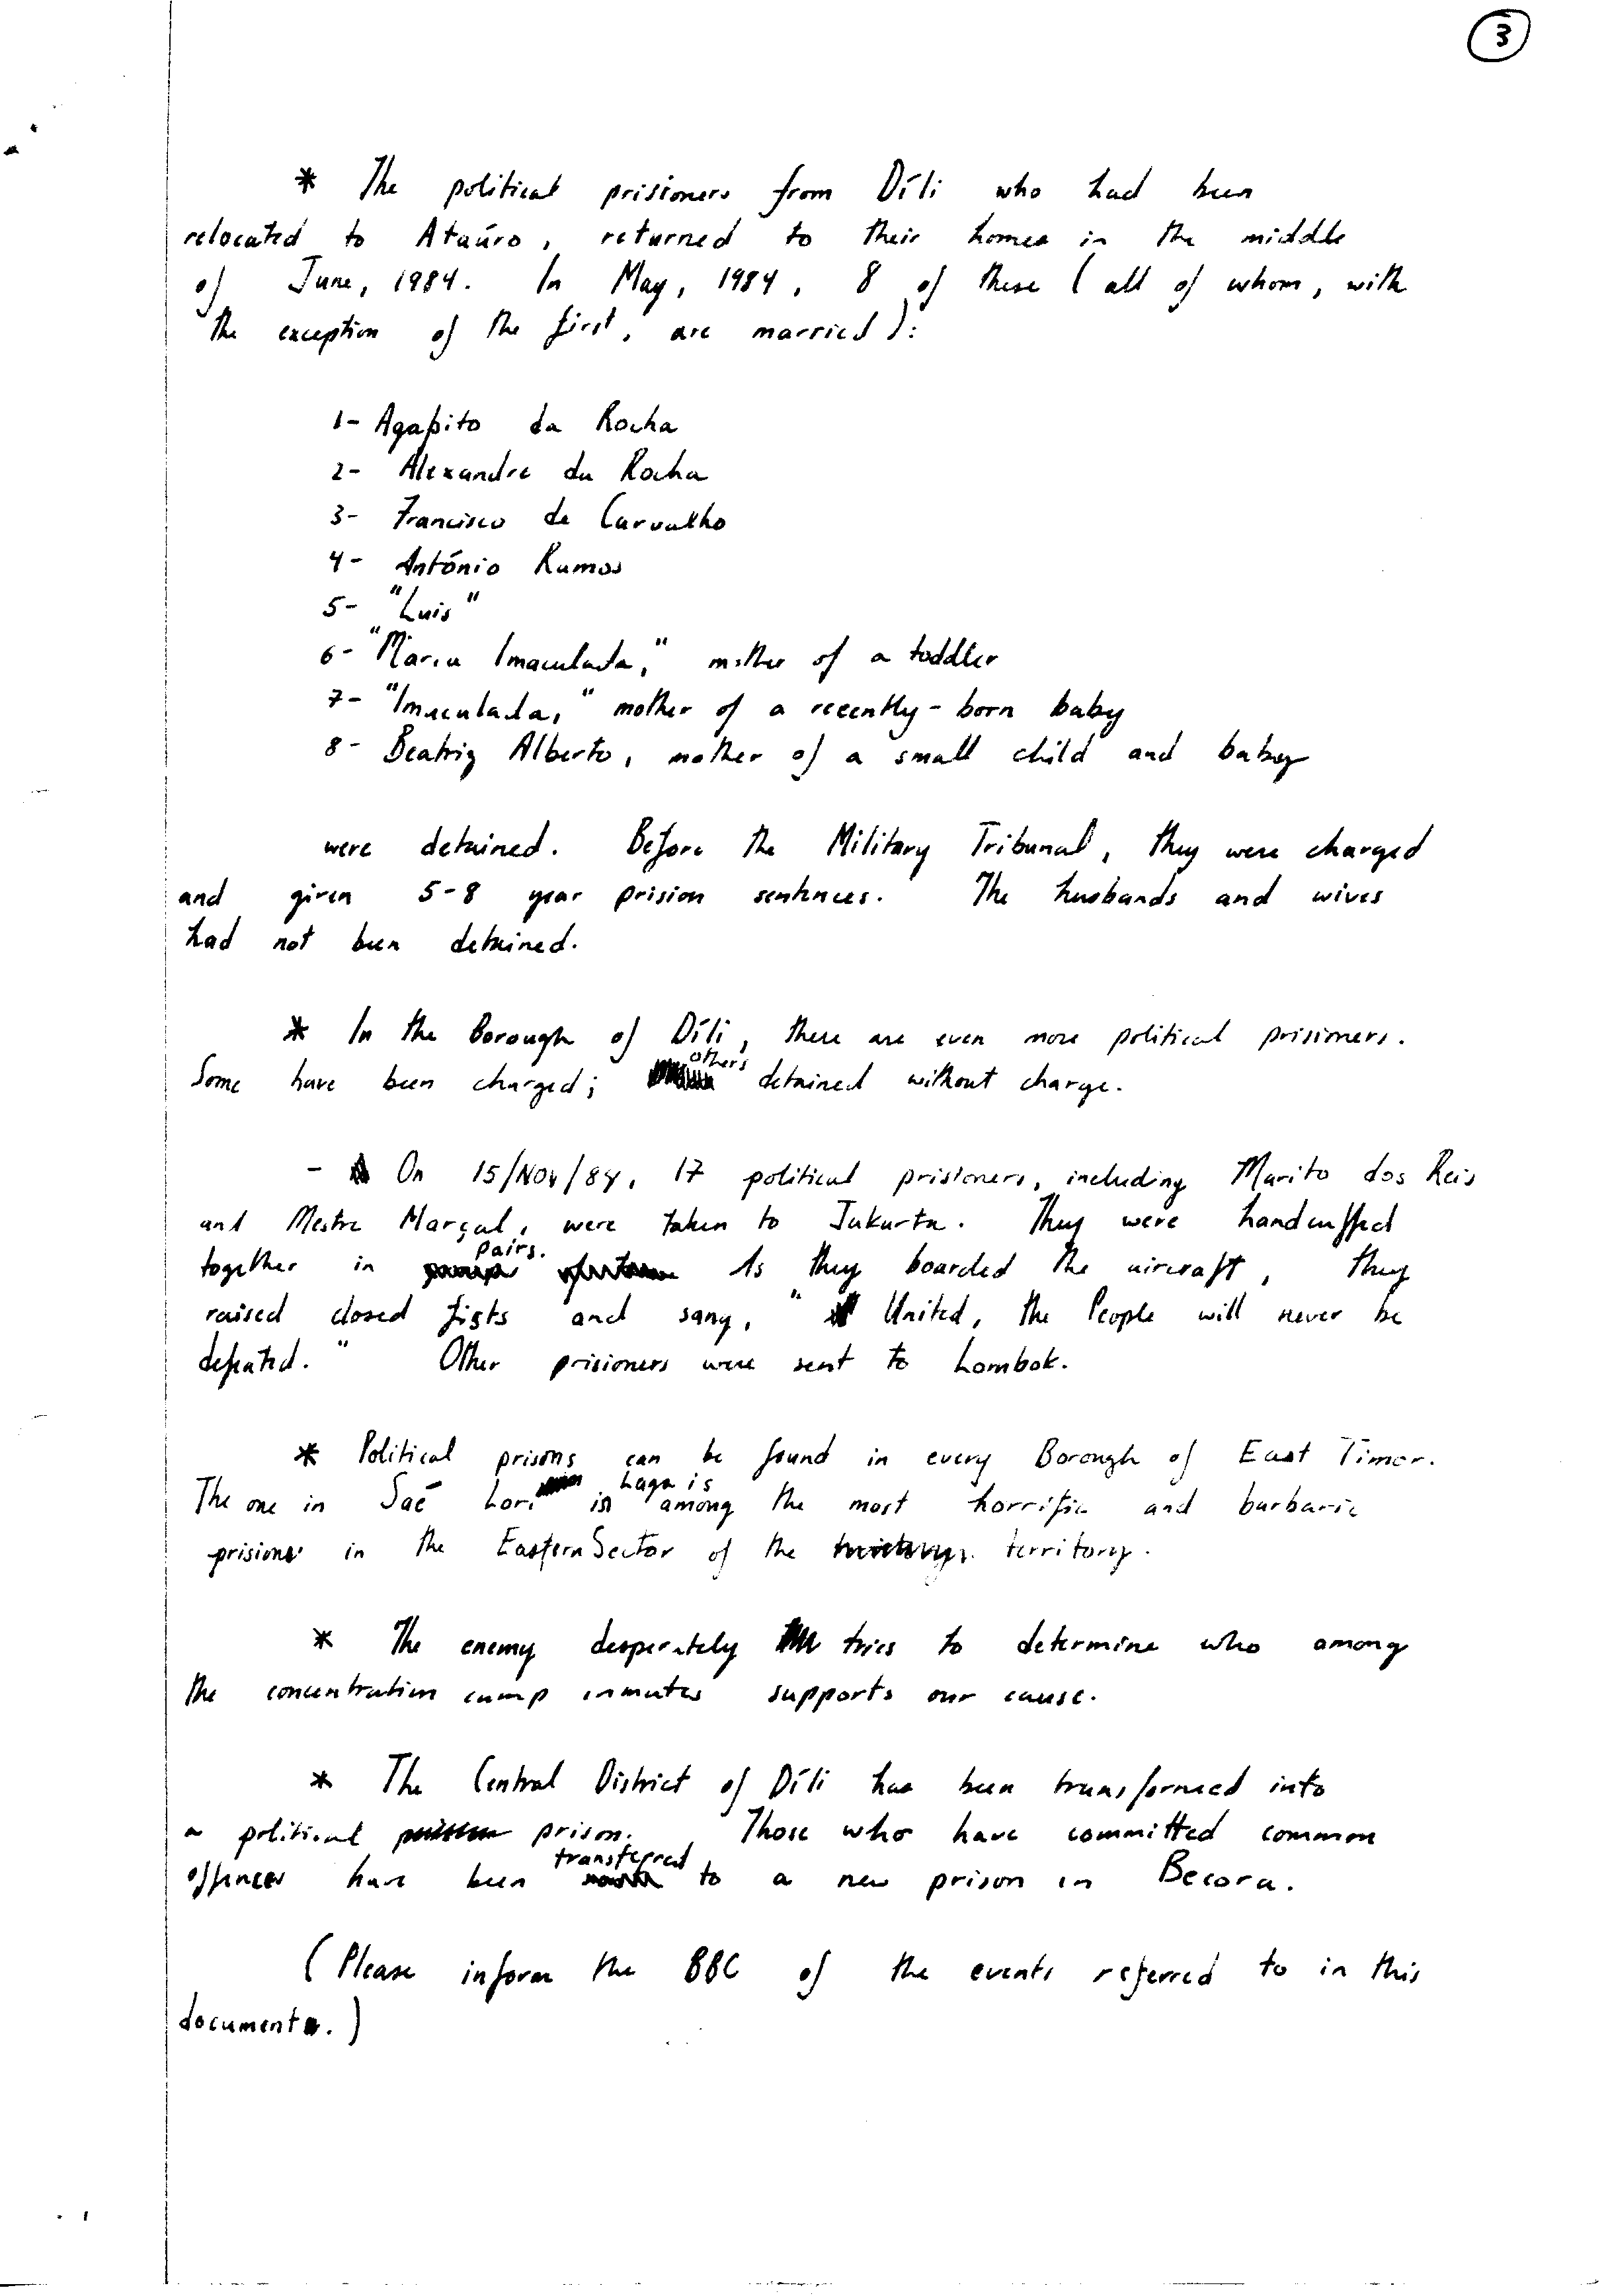 3
* The political prisioners from Díli who had been
relocated to Ataúro, returned to their homes in the middle
of June, 1984. In May, 1984, 8 of these (all of whom, with
the exception of the first, are married):
1- Agapito da Rocha
2- Alexandre da Rocha
3- Francisco de Carvalho
4- António Ramos
5- "Luis"
6- "Maria Imaculada," mother of a toddler
7- "Imaculada," mother of a recently-born baby
8- Beatriz Alberto, mother of a small child and baby
were detained. Before the Military Tribunal, they were charged
and given 5-8 year prision sentences. The husbands and wives
had not been detained.
* In the Borough of Díli, there are even more political prisioners.
Some have been charged; others detained without charge.
- On 15/Nov/84, 17 political prisioners, including Marito dos Reis
and Mestre Marçal, were taken to Jakarta. They were handcuffed
together in pairs. As they boarded the aircraft, they
raised closed fists and sang, "United, the People will never be
defeated." Other prisioners were sent to Lombok.
* Political prisons can be found in every Borough of East Timor.
The one in Saé Lori Laga is among the most horrific and barbaric
prisions in the Eastern Sector of the territory.
* The enemy desperately tries to determine who among
the concentration camp inmates supports our cause.
* The Central District of Díli has been transformed into
a political prison. Those who have committed common
offences have been transferred to a new prison in Becora.
(Please inform the BBC of the events referred to in this
document.)